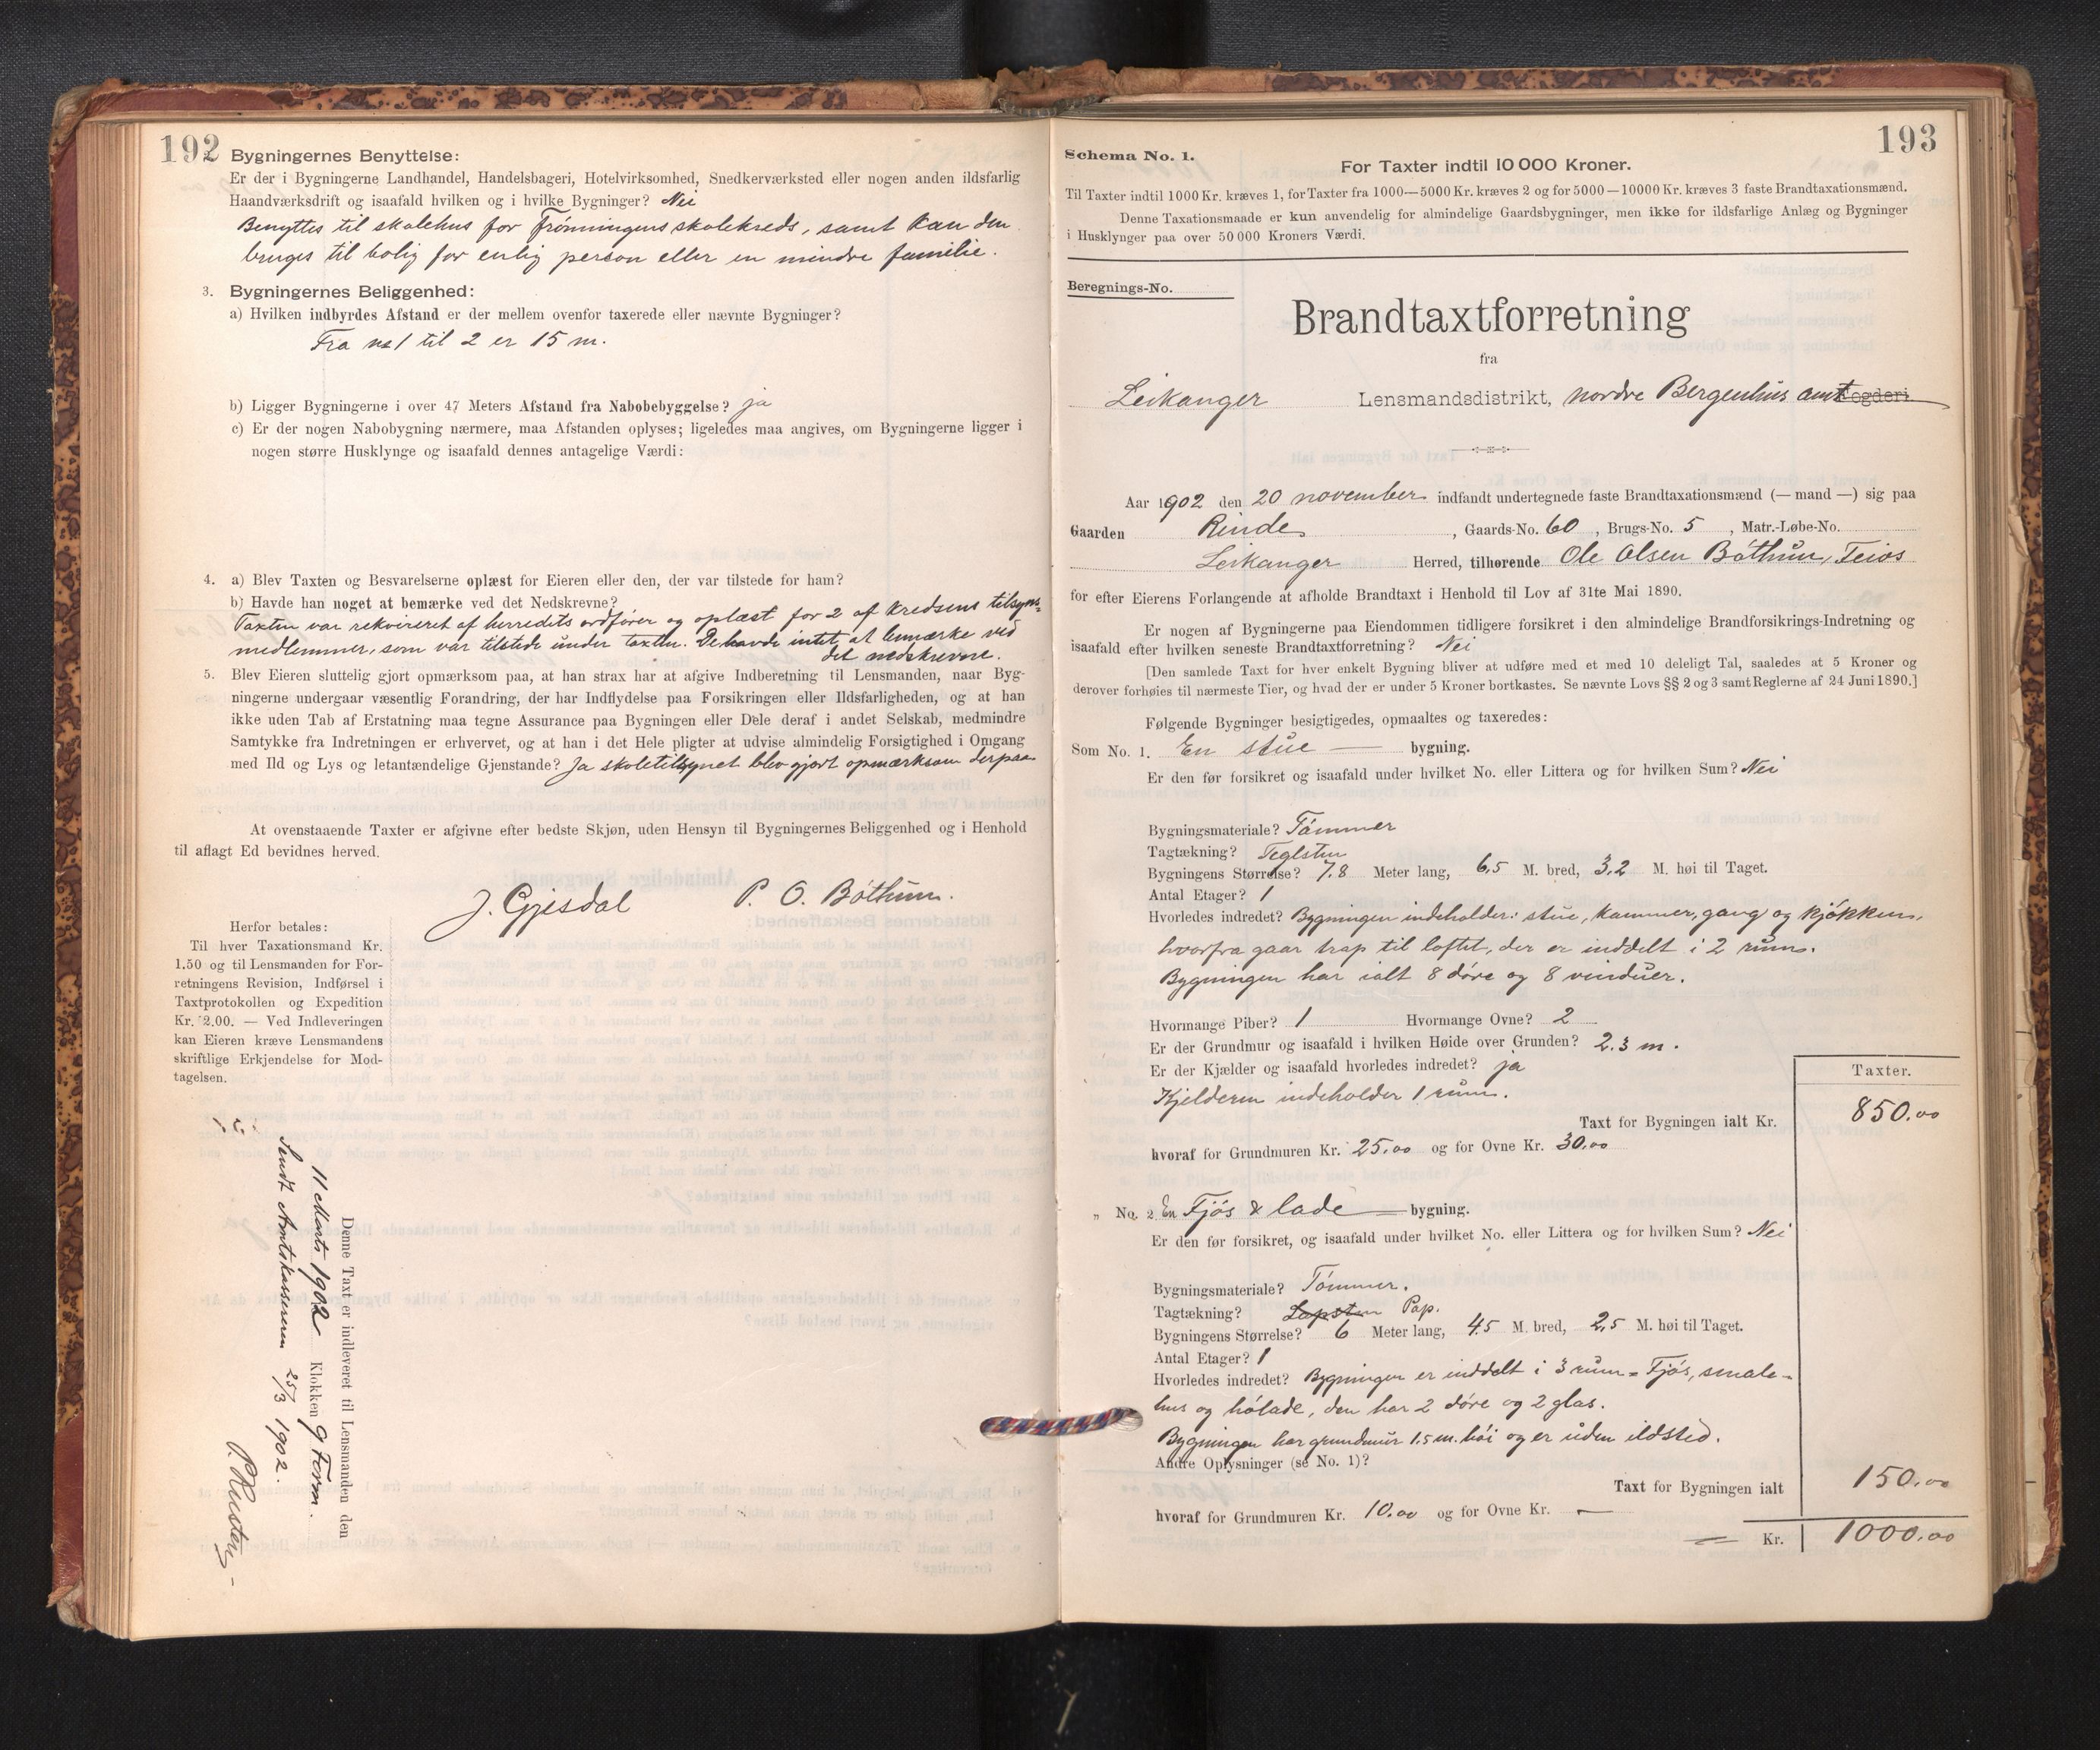 192
Bygningernes Benyttelse:
Er der i Bygningerne Landhandel, Handelsbageri, Hotelvirksomhed, Snedkerværksted eller nogen anden ildsfarlig
Haandværksdrift og isaafald hvilken og i hvilke Bygninger? Nei
Benyttes til skolehus for Frønningens skolekreds, samt kan den
bruges til bolig for enlig person eller en mindre familie.
3. Bygningernes Beliggenhed:
a) Hvilken indbyrdes Afstand er der mellem ovenfor taxerede eller nævnte Bygninger?
Fra no 1 til 2 er 15 m.
b) Ligger Bygningerne i over 47 Meters Afstand fra Nabobebyggelse? ja
c) Er der nogen Nabobygning nærmere, maa Afstanden oplyses; ligeledes maa angives, om Bygningerne ligger i
nogen større Husklynge og isaafald dennes antagelige Værdi:
4. a) Blev Taxten og Besvarelserne oplæst for Eieren eller den, der var tilstede for ham?
b) Havde han noget at bemærke ved det Nedskrevne?
Taxten var rekvireret af herredets ordfører og oplæst for 2 af kredsens tilsyns-
medlemmer, som var tilstede under taxten. De havde intet at bemærke ved
det nedskrevne.
5. Blev Eieren sluttelig gjort opmærksom paa, at han strax har at afgive Indberetning til Lensmanden, naar Byg-
ningerne undergaar væsentlig Forandring, der har Indflydelse paa Forsikringen eller Ildsfarligheden, og at han
ikke uden Tab af Erstatning maa tegne Assurance paa Bygningen eller Dele deraf i andet Selskab, medmindre
Samtykke fra Indretningen er erhvervet, og at han i det Hele pligter at udvise almindelig Forsigtighed i Omgang
med Ild og Lys og letantændelige Gjenstande? Ja skoletilsynet blev gjort opmærksom derpaa
At ovenstaaende Taxter er afgivne efter bedste Skjøn, uden Hensyn til Bygningernes Beliggenhed og i Henhold
til aflagt Ed bevidnes herved.
J. Gjesdal P. O. Bóthun.
Herfor betales:
Til hver Taxationsmand Kr.
1.50 og til Lensmanden for For-
retningens Revision, Indførsel i
Taxtprotokollen og Expedition
Kr. 2.00. — Ved Indleveringen
kan Eieren kræve Lensmandens
skriftlige Erkjendelse for Mod-
tagelsen.
Denne Taxt er indleveret til Lensmanden den
11 Marts 1902 Klokken 9 Form.
Sendt Amtskassereren 25/3 1902.
193
Schema No. 1.
For Taxter indtil 10 000 Kroner.
Til Taxter indtil 1000 Kr. kræves 1, for Taxter fra 1000—5000 Kr. kræves 2 og for 5000—10000 Kr. kræves 3 faste Brandtaxationsmænd.
Denne Taxationsmaade er kun anvendelig for almindelige Gaardsbygninger, men ikke for ildsfarlige Anlæg og Bygninger
i Husklynger paa over 50 000 Kroners Værdi.
Beregnings-No.
Brandtaxtforretning
fra
Leikanger Lensmandsdistrikt, nordre Bergenhus amt Fogderi
Aar 1902 den 20 november indfandt undertegnede faste Brandtaxationsmænd (—mand—) sig paa
Gaarden Rinde, Gaards-No. 60, Brugs-No. 5, Matr.-Løbe-No.
Leikanger Herred, tilhørende Ole Olsen Bóthun, Feios
for efter Eierens Forlangende at afholde Brandtaxt i Henhold til Lov af 31te Mai 1890.
Er nogen af Bygningerne paa Eiendommen tidligere forsikret i den almindelige Brandforsikrings-Indretning og
isaafald efter hvilken seneste Brandtaxtforretning? Nei
[Den samlede Taxt for hver enkelt Bygning bliver at udføre med et med 10 deleligt Tal, saaledes at 5 Kroner og
derover forhøies til nærmeste Tier, og hvad der er under 5 Kroner bortkastes. Se nævnte Lovs §§ 2 og 3 samt Reglerne af 24 Juni 1890.]
Følgende Bygninger besigtigedes, opmaaltes og taxeredes:
Som No. 1. En stue bygning.
Er den før forsikret og isaafald under hvilket No. eller Littera og for hvilken Sum? Nei
Bygningsmateriale? Tømmer
Tagtækning? Teglsten
Bygningens Størrelse? 7.8 Meter lang, 6,5 M. bred, 3,2 M. høi til Taget.
Antal Etager? 1
Hvorledes indredet? Bygningen indeholder: stue, kammer, gang og kjøkken,
hvorfra gaar trap til loftet, der er inddelt i 2 rum.
Bygningen har ialt 8 døre og 8 vinduer.
Hvormange Piber? 1 Hvormange Ovne? 2
Er der Grundmur og isaafald i hvilken Høide over Grunden? 2.3 m.
Er der Kjælder og isaafald hvorledes indredet? ja
Kjelderen indeholder 1 rum.
Taxter.
Taxt for Bygningen ialt Kr. 850.00
hvoraf for Grundmuren Kr. 25.00 og for Ovne Kr. 30.00
„ No. 2. En Fjøs & lade bygning.
Er den før forsikret, og isaafald under hvilket No. eller Littera og for hvilken Sum? Nei
Bygningsmateriale? Tømmer.
Tagtækning? Pap.
Bygningens Størrelse? 6 Meter lang, 4.5 M. bred, 2,5 M. høi til Taget.
Antal Etager? 1
Hvorledes indredet? Bygningen er inddelt i 3 rum = Fjøs, smale-
hus og hølade, den har 2 døre og 2 glas.
Bygningen har grundmur 1.5 m. høi og er uden ildsted.
Andre Oplysninger (se No. 1)?
Taxt for Bygningen ialt 150.00
hvoraf for Grundmuren Kr. 10.00 og for Ovne Kr. —
Kr. 1000.00